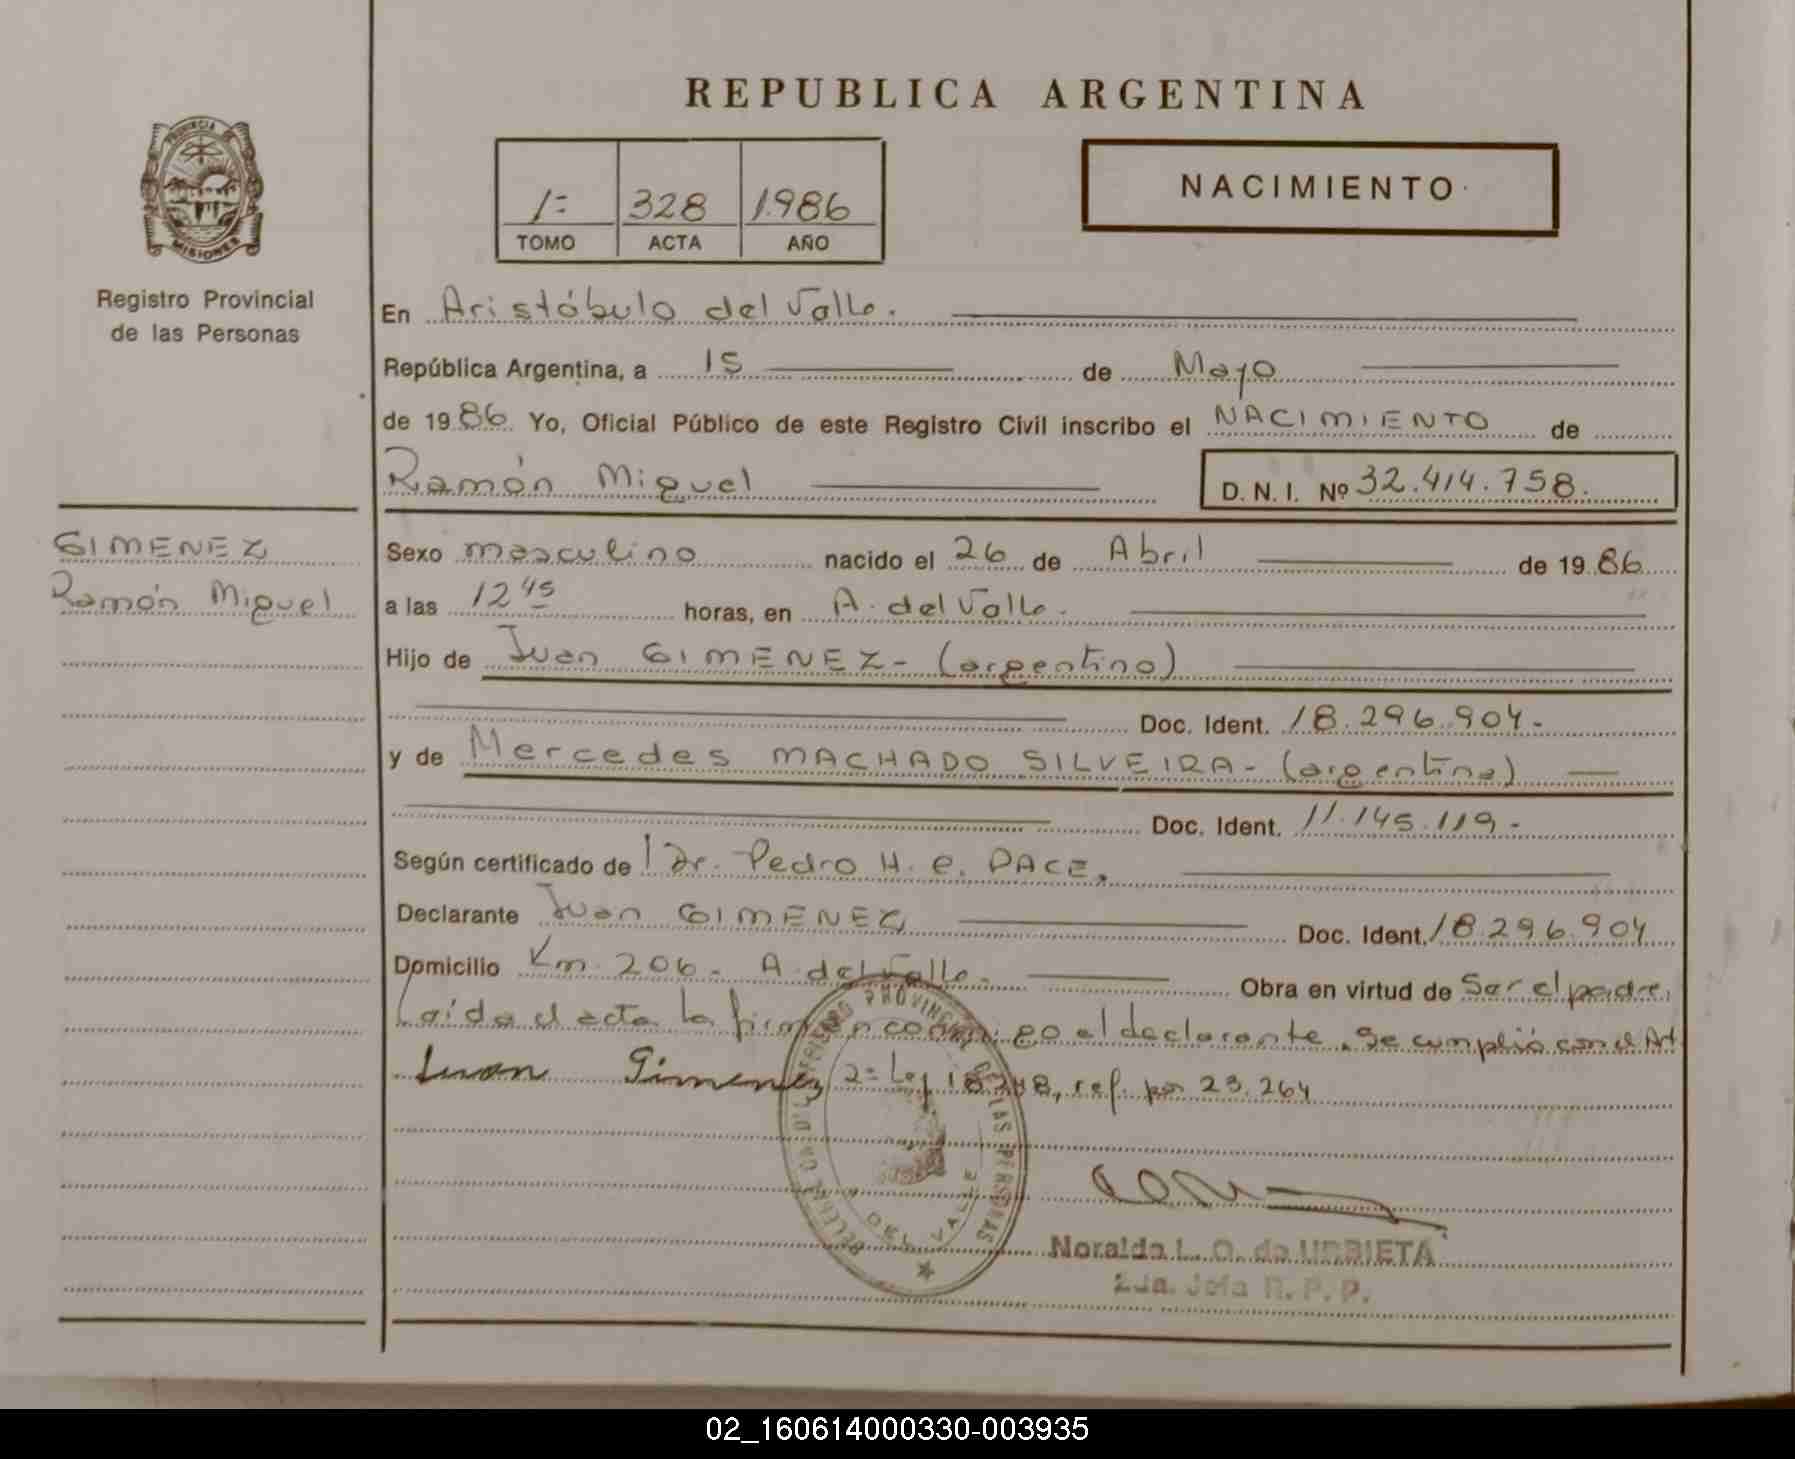 REPUBLICA ARGENTINA
PROVINCIA DE
MISIONES
Registro Provincial
de las Personas
1= 328 1.986
TOMO ACTA AÑO
NACIMIENTO
En Aristóbulo del Valle.
República Argentina, a 15 de Mayo
de 1986 Yo, Oficial Público de este Registro Civil inscribo el NACIMIENTO de
Ramón Miguel D. N. I. Nº 32.414.758.
GIMENEZ
Ramón Miguel
Sexo masculino nacido el 26 de Abril de 1986
a las 12 45 horas, en A. del Valle.
Hijo de Juan GIMENEZ- (argentino)
Doc. Ident. 18.296.904-
y de Mercedes MACHADO SILVEIRA- (argentina)
Doc. Ident. 11.145.119-
Según certificado de l Dr. Pedro H. e. PACE.
Declarante Juan GIMENEZ Doc. Ident. 18.296.904
Domicilio Km. 206- A. del Valle. Obra en virtud de Ser el padre.
Leída el acta la firman conmigo el declarante. Se cumplió con el Art
Juan Gimenez 2= Ley 18.248, ref. por 23.264
PROVINCIAL DE LAS PERSONAS
DEL VALLE
Noralda L. O. de URBIETA
2da. Jefa R. P. P.
02_160614000330-003935